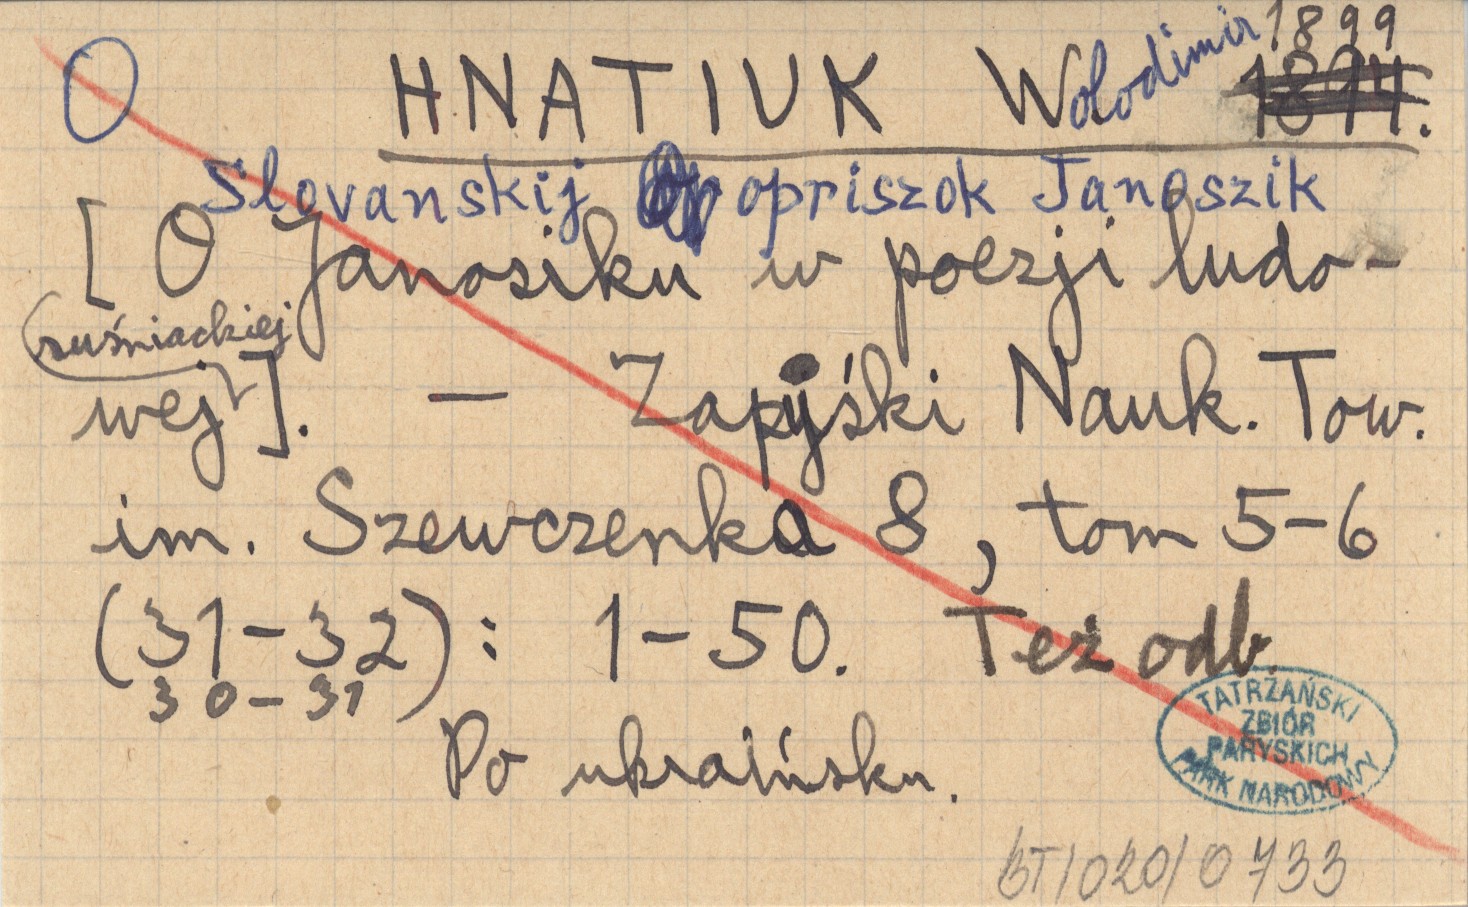 O HNATIUK Wolodimir 1899
1894.
Slovanskij opriszok Janoszik
[O Janosiku w poezji ludo-
(ruśniackiej
wej].  — Zapyśki Nauk. Tow.
im. Szewczenka 8, tom 5-6
(31-32): 1-50. Też odb
30-31
Po ukraińsku.
TATRZAŃSKI
ZBIÓR
PARYSKICH
PARK NARODOWY
BT/020/0733